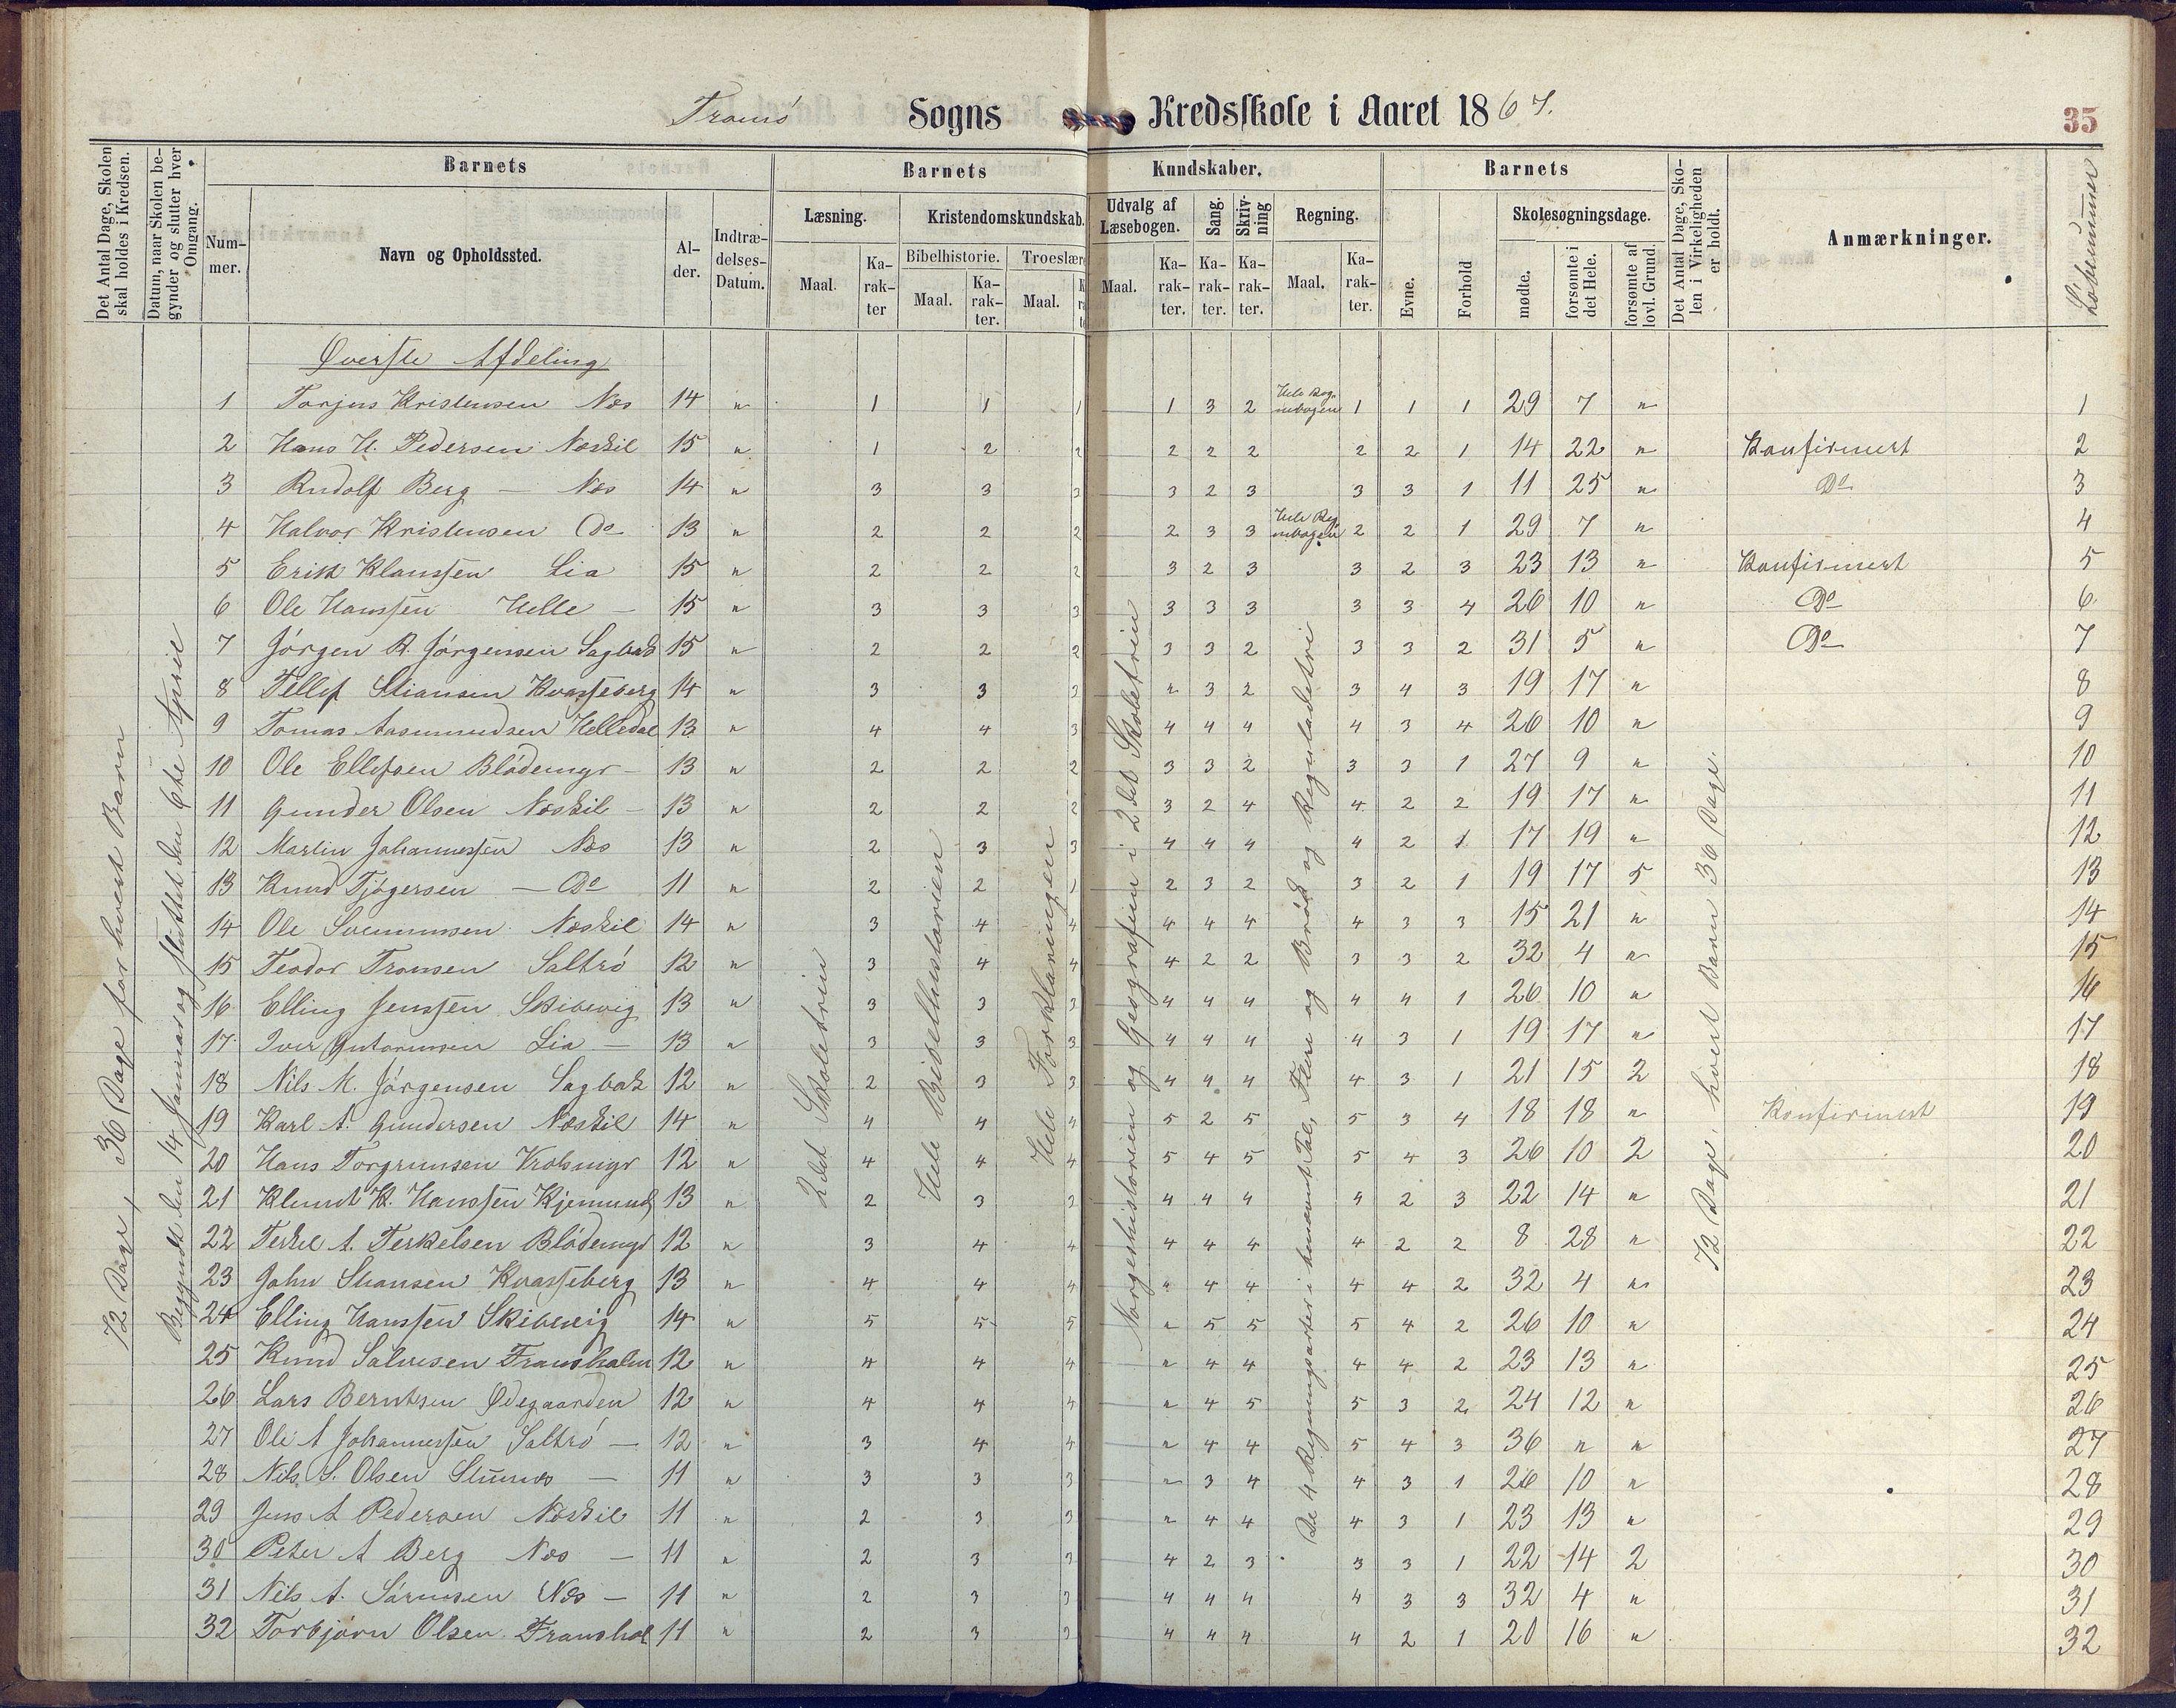 Tromö Sogns Kredsskole i Aaret 1867. 35
Det Antal Dage, Skolen skal holdes i Kredsen.
Datum, naar Skolen begynder og slutter hver Omgang.
Barnets
Nummer.
Navn og Opholdssted.
Alder.
Indtrædelses-Datum.
Barnets Kundskaber.
Læsning.
Maal.
Karakter
Kristendomskundskab.
Bibelhistorie.
Maal.
Karakter.
Troeslære
Maal.
Udvalg af Læsebogen.
Maal.
Karakter.
Sang.
Karakter.
Skrivning
Karakter.
Regning.
Maal.
Karakter.
Barnets
Evne.
Forhold
Skolesøgningsdage.
mødte.
forsømte i det Hele.
forsømte af lovl. Grund.
Det Antal Dage, Skolen i Virkeligheden er holdt.
Anmærkninger.
Löbenummer
72 Dage, 36 Dage for hvert Barn
Begyndt den 14 Januar og sluttet den 6te April
2det Skoletrin
Hele Bibelhistorien
Hele Forklaringen
Norgeshistorien og Geografien i 2det Skoletrin
De 4 Regningsarter i benævnt Tal, Flere og Brök og Reguladetri
72 Dage, hvert Barn 36 Dage.
Øverste Afdeling
1 Torjus Kristensen Næs 14 " 1 1 1 1 3 2 Hele Regnebogen 1 1 1 29 7 " 1
2 Hans H. Pedersen Næskil 15 " 1 2 2 2 2 2 2 2 1 14 22 " Konfirmert 2
3 Rudolf Berg — Næs 14 " 3 3 3 3 2 3 3 3 1 11 25 " Do 3
4 Halvor Kristensen Do 13 " 2 2 2 2 3 3 Hele Regnebogen 2 2 1 29 7 " 4
5 Erik Klaussen Lia 15 " 2 2 2 3 2 3 3 2 3 23 13 " Konfirmert 5
6 Ole Hanssen Helle — 15 " 3 3 3 3 3 3 3 3 4 26 10 " Do 6
7 Jörgen R. Jörgensen Sagbak 15 " 2 2 2 3 3 2 3 3 2 31 5 " Do 7
8 Tellef Stiansen Kvasseberg 14 " 3 3 3 " 3 2 3 4 3 19 17 " 8
9 Tomas Aasmundsen Helledal 13 " 4 4 3 4 4 4 4 3 4 26 10 " 9
10 Ole Ellefsen Blödemyr — 13 " 2 2 2 3 3 2 3 3 1 27 9 " 10
11 Gunder Olsen Næskil — 13 " 2 2 2 3 2 4 4 2 2 19 17 " 11
12 Martin Johannessen Næs 13 " 2 3 3 4 4 4 4 2 1 17 19 " 12
13 Knud Tjögersen — Do 11 " 2 2 1 2 3 2 3 2 1 19 17 5 13
14 Ole Svenunsen Næskil 14 " 3 4 4 4 4 4 4 3 3 15 21 " 14
15 Teodor Tronsen Saltrö 12 " 3 4 4 4 2 2 3 3 2 32 4 " 15
16 Elling Jenssen Skibevig 13 " 3 3 3 4 4 4 4 4 1 26 10 " 16
17 Iver Gutormsen Lia — 13 " 3 3 3 4 4 4 4 3 1 19 17 " 17
18 Nils M. Jörgensen Sagbak 12 " 2 3 3 4 4 4 4 3 1 21 15 2 18
19 Karl A. Gundersen Næskil 14 " 4 4 4 5 2 5 5 3 4 18 18 " Konfirmert 19
20 Hans Torgrimsen 12 " 4 4 4 5 4 5 5 4 3 26 10 2 20
21 Klemt K. Hanssen 13 " 2 3 3 4 4 4 4 2 3 22 14 " 21
22 Terkel A. Terkelsen Blödemyr 12 " 3 4 4 4 4 4 4 2 2 8 28 " 22
23 John Stiansen Kvasseberg 13 " 4 4 4 " 4 4 4 4 2 32 4 " 23
24 Elling Hanssen Skibevig 14 " 5 5 5 " 5 5 5 4 2 26 10 " 24
25 Knud Salvesen Fransholm 12 " 4 4 4 " 4 4 4 4 2 23 13 " 25
26 Lars Berntsen Ødegaarden 12 " 4 4 4 " 4 5 5 3 2 24 12 " 26
27 Ole A Johannessen Saltrö — 12 " 3 4 4 " 4 4 5 4 3 36 " " 27
28 Nils S. Olsen — 11 " 3 3 3 " 3 4 4 3 1 26 10 " 28
29 Jens A Pedersen Næskil 11 " 2 3 3 " 4 4 4 3 1 23 13 " 29
30 Peter A Berg Næs — 11 " 2 3 3 4 2 3 3 3 1 22 14 2 30
31 Nils A. Sörensen Næs — 11 " 2 3 3 4 4 4 4 3 3 32 4 " 31
32 Torbjörn Olsen Franshol 11 " 2 3 3 4 4 4 4 2 1 20 16 " 32